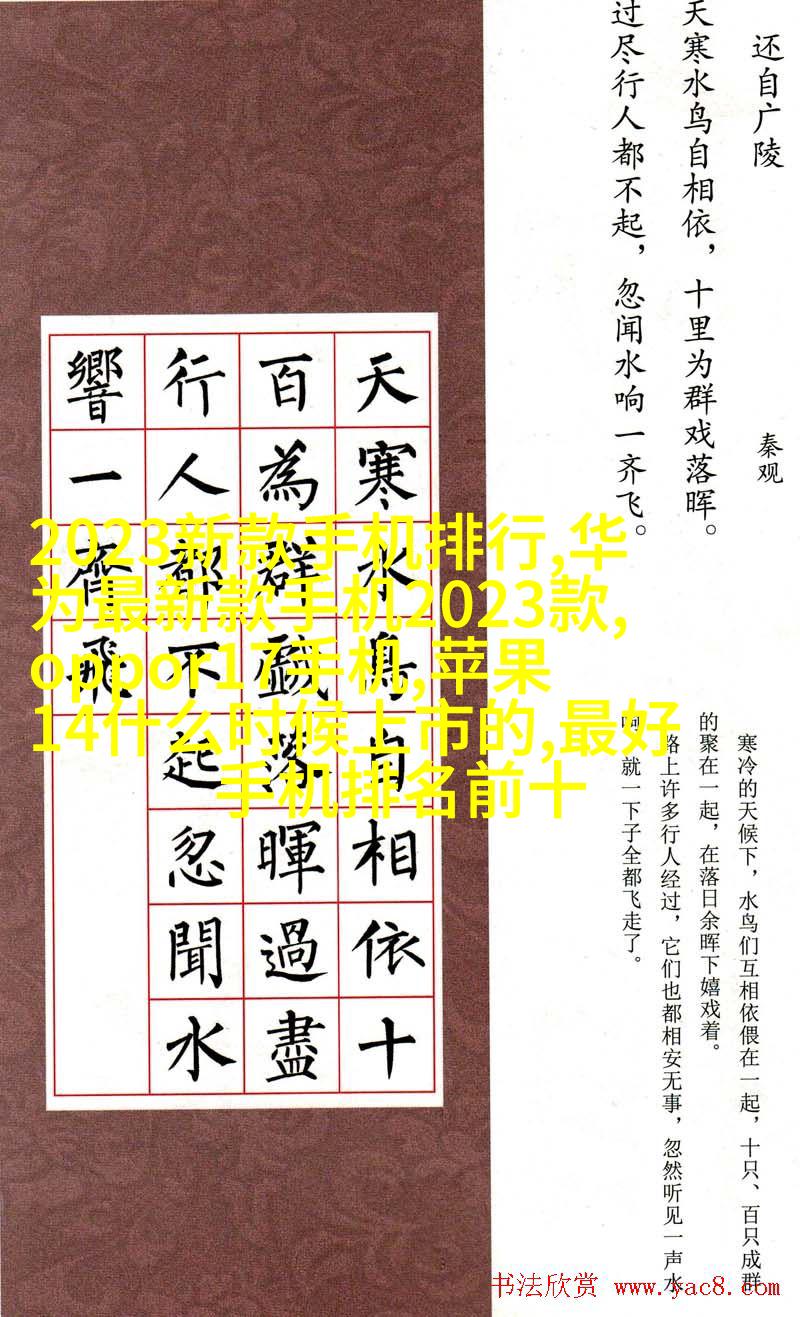 还自广陵
秦观
天寒水鸟自相依，十里为群戏落晖。
过尽行人都不起，忽闻水响一齐飞。
天寒水鳥自相依十
百為群戲落暉過盡
行人都不起忽聞水
響一齊飛
2023新款手机排行,华
为最新款手机2023款,
oppor17手机,苹果
14什么时候上市的,最好
手机排名前十
寒冷的天候下，水鸟们互相依偎在一起，十只、百只成群
的聚在一起，在落日余晖下嬉戏着。
路上许多行人经过，它们也都相安无事，忽然听见一声水
响，就一下子全都飞走了。
书法欣赏 www.yac8.com